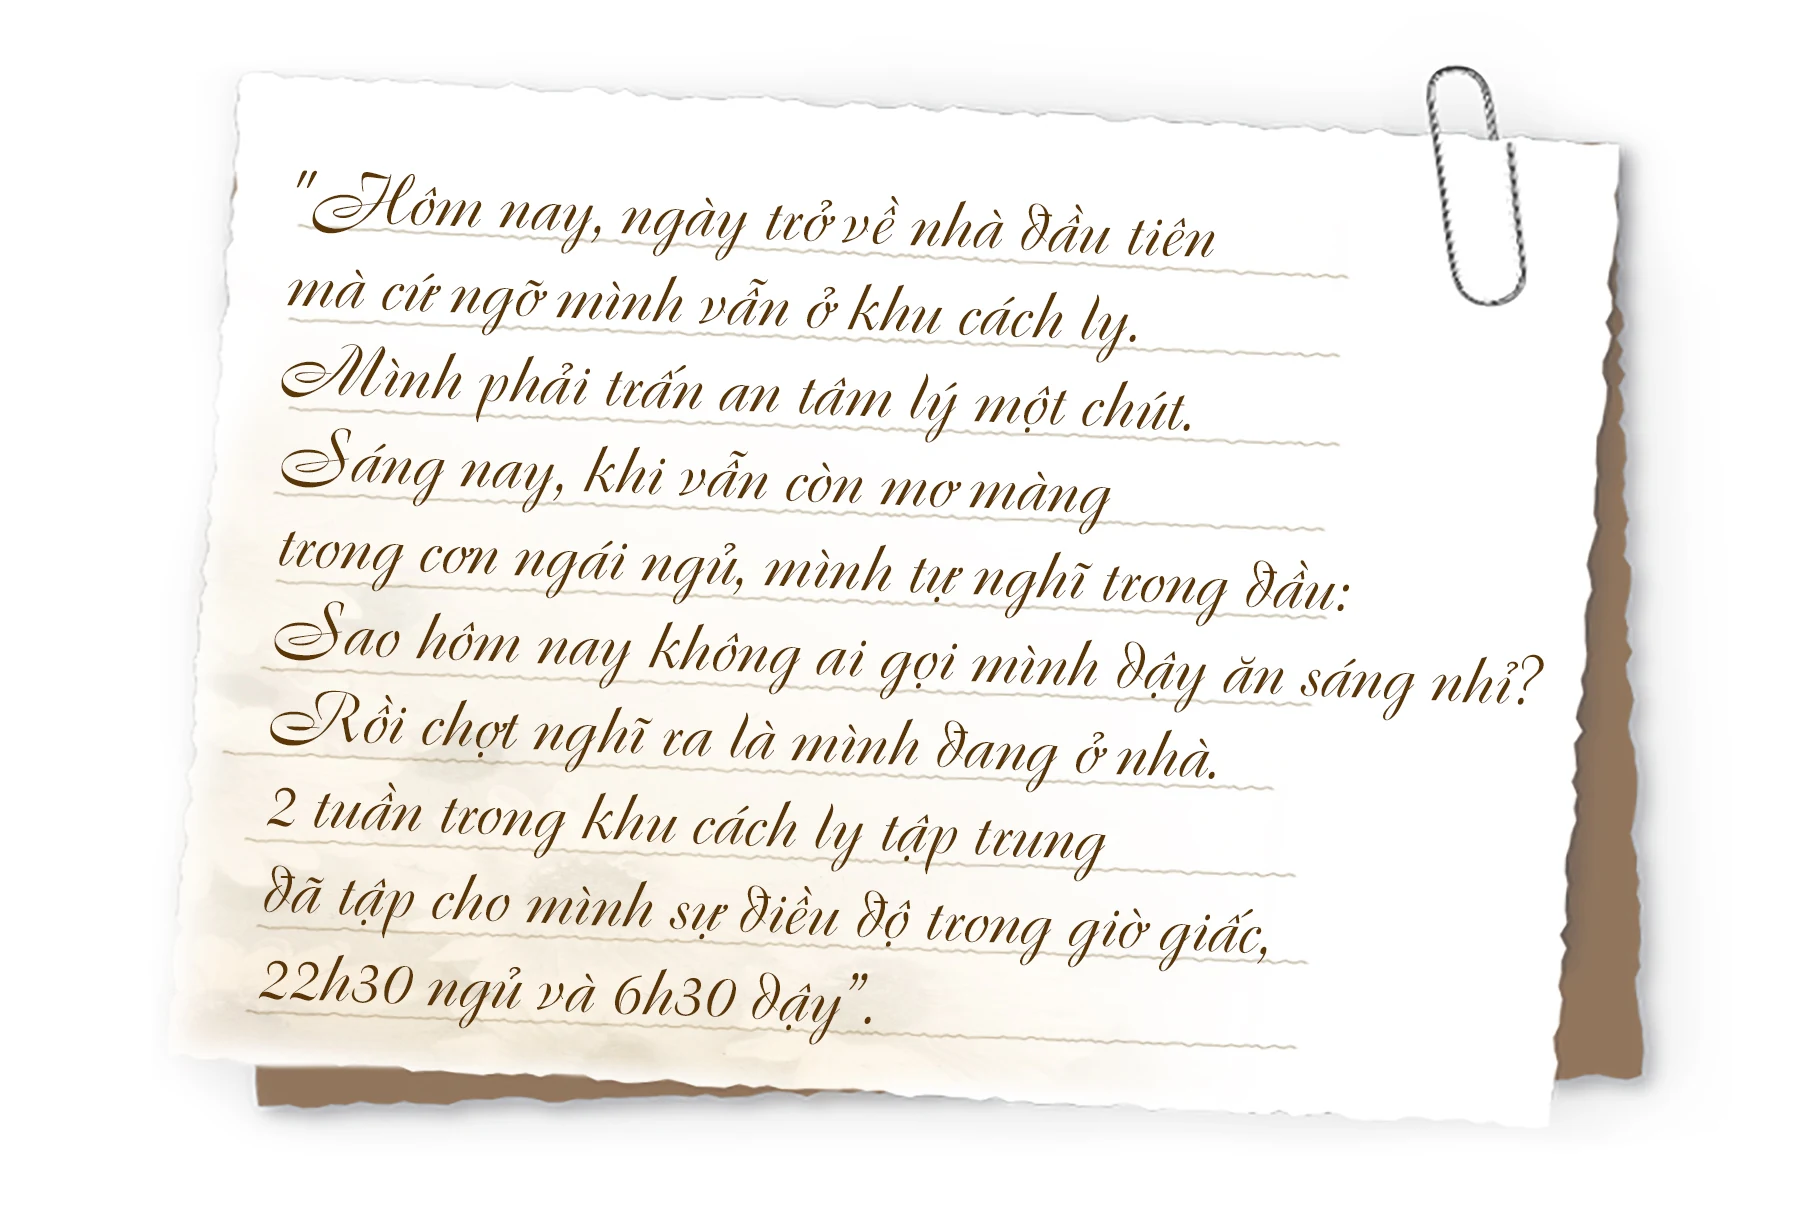 "Hôm nay, ngày trở về nhà đầu tiên
mà cứ ngỡ mình vẫn ở khu cách ly.
Mình phải trấn an tâm lý một chút.
Sáng nay, khi vẫn còn mơ màng
trong cơn ngái ngủ, mình tự nghĩ trong đầu:
Sao hôm nay không ai gọi mình dậy ăn sáng nhỉ?
Rồi chợt nghĩ ra là mình đang ở nhà.
2 tuần trong khu cách ly tập trung
đã tập cho mình sự điều độ trong giờ giấc,
22h30 ngủ và 6h30 dậy”.